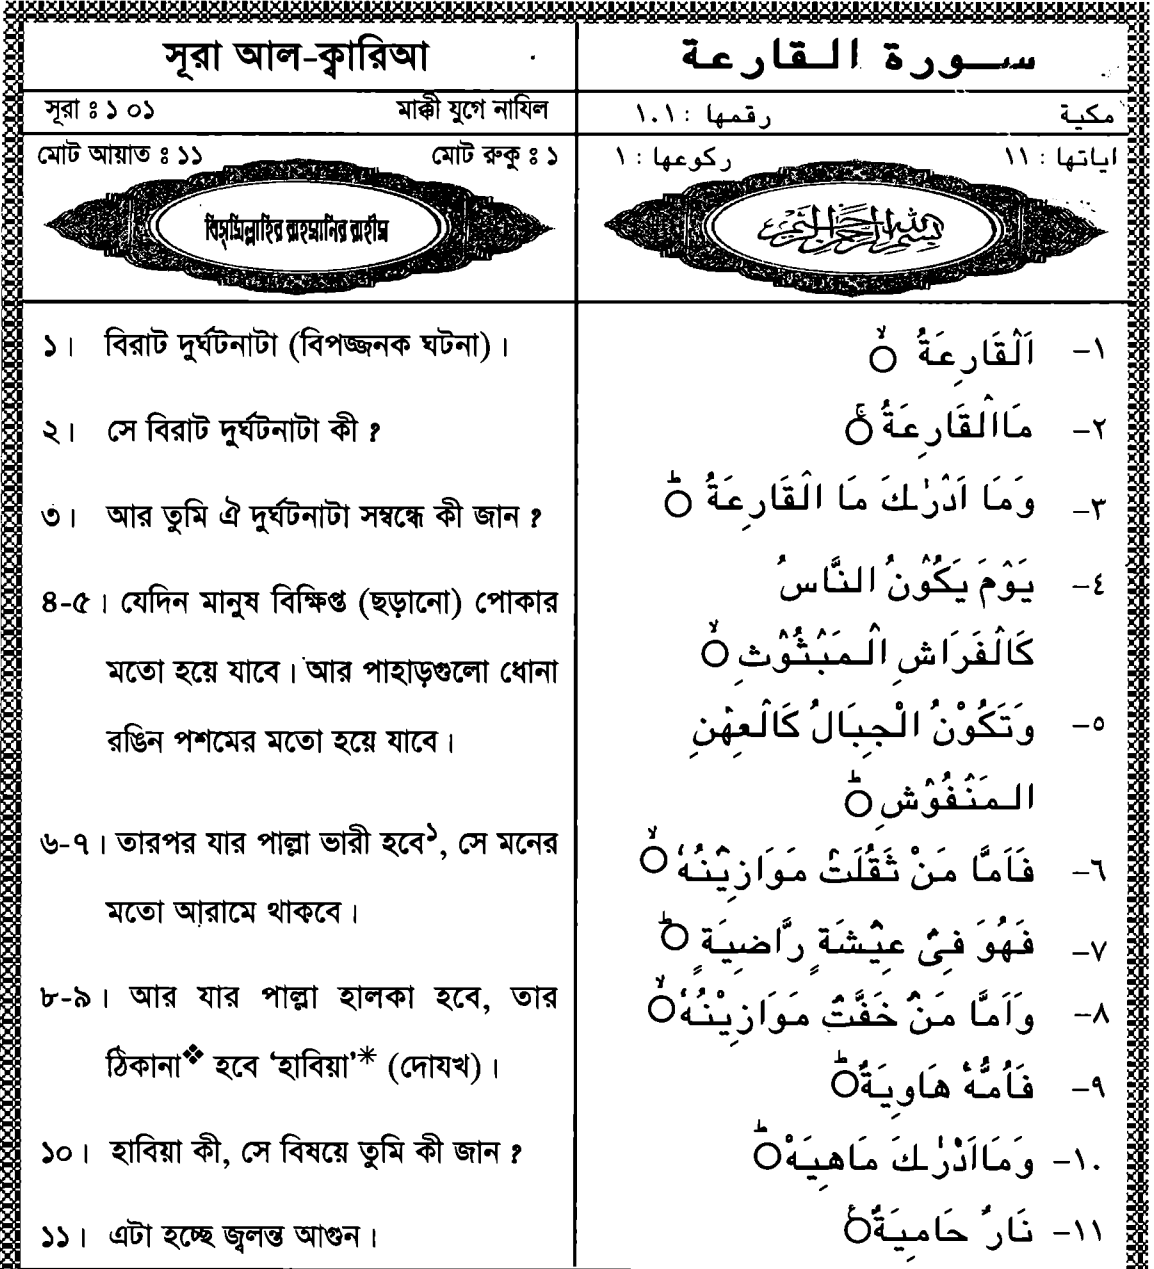 সূরা আল-ক্বারিআ
সূরা ঃ ১০১ মাক্কী যুগে নাযিল
মোট আয়াত ঃ ১১ মোট রুকু ঃ ১
বিস্‌মিল্লাহির রাহমানির রাহীম
১। বিরাট দুর্ঘটনাটা (বিপজ্জনক ঘটনা)।
২। সে বিরাট দুর্ঘটনাটা কী ?
৩। আর তুমি ঐ দুর্ঘটনাটা সম্বন্ধে কী জান ?
৪-৫। যেদিন মানুষ বিক্ষিপ্ত (ছড়ানো) পোকার
মতো হয়ে যাবে। আর পাহাড়গুলো ধোনা
রঙিন পশমের মতো হয়ে যাবে।
৬-৭। তারপর যার পাল্লা ভারী হবে১, সে মনের
মতো আরামে থাকবে।
৮-৯। আর যার পাল্লা হালকা হবে, তার
ঠিকানা❖ হবে ‘হাবিয়া’* (দোযখ)।
১০। হাবিয়া কী, সে বিষয়ে তুমি কী জান ?
১১। এটা হচ্ছে জ্বলন্ত আগুন।
سورة القارعة
مكية رقمها : ١٠١
اياتها : ١١ ركوعها : ١
بسم الله الرحمن الرحيم
١- اَلْقَارِعَةُ ۙ
٢- مَاالْقَارِعَةُ ۚ
٣- وَمَا اَدْرٰىكَ مَا الْقَارِعَةُ ؕ
٤- يَوْمَ يَكُوْنُ النَّاسُ
كَالْفَرَاشِ الْمَبْثُوْثِ ۙ
٥- وَتَكُوْنُ الْجِبَالُ كَالْعِهْنِ
الْمَنْفُوْشِ ؕ
٦- فَاَمَّا مَنْ ثَقُلَتْ مَوَازِيْنُهٗ ۙ
٧- فَهُوَ فِىْ عِيْشَةٍ رَّاضِيَةٍ ؕ
٨- وَاَمَّا مَنْ خَفَّتْ مَوَازِيْنُهٗ ۙ
٩- فَاُمُّهٗ هَاوِيَةٌ ؕ
١٠- وَمَااَدْرٰىكَ مَاهِيَهْ ؕ
١١- نَارٌ حَامِيَةٌ ۚ